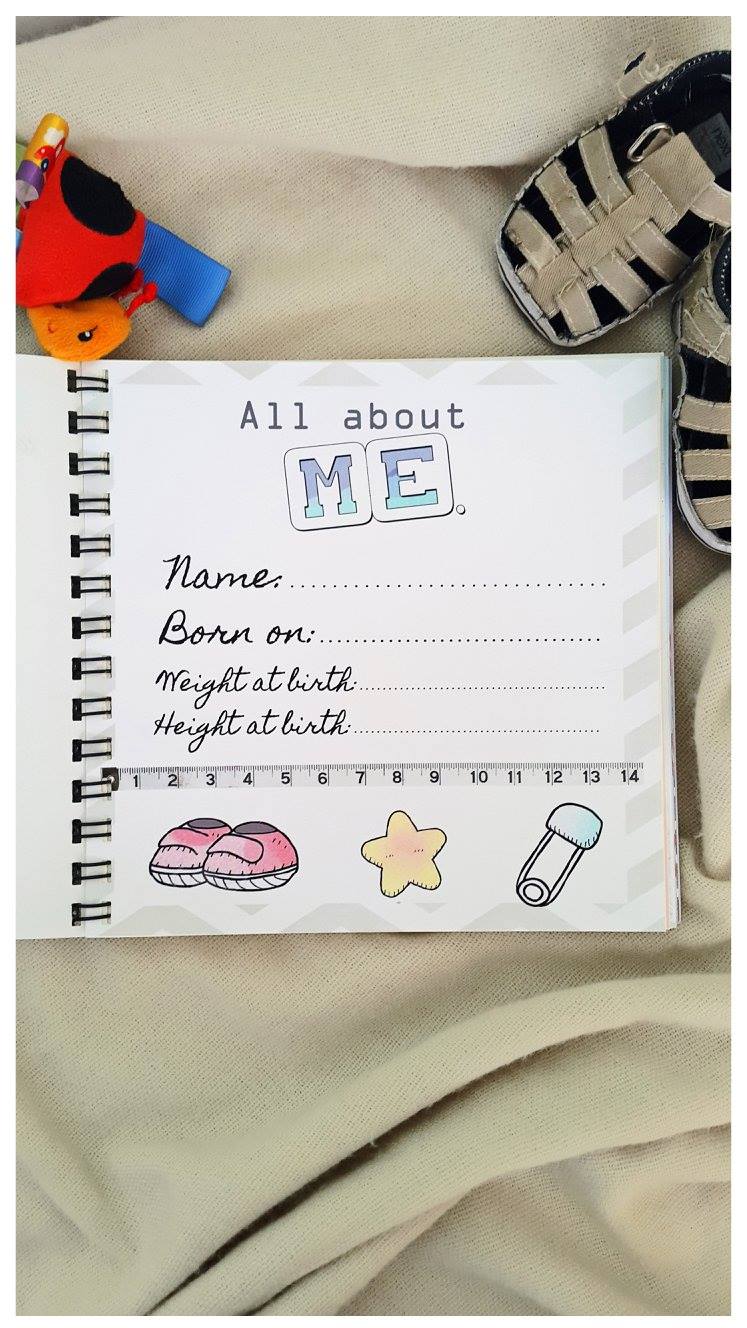 All about
ME.
Name:..............................
Born on:..............................
Weight at birth:..............................
Height at birth:..............................
1 2 3 4 5 6 7 8 9 10 11 12 13 14